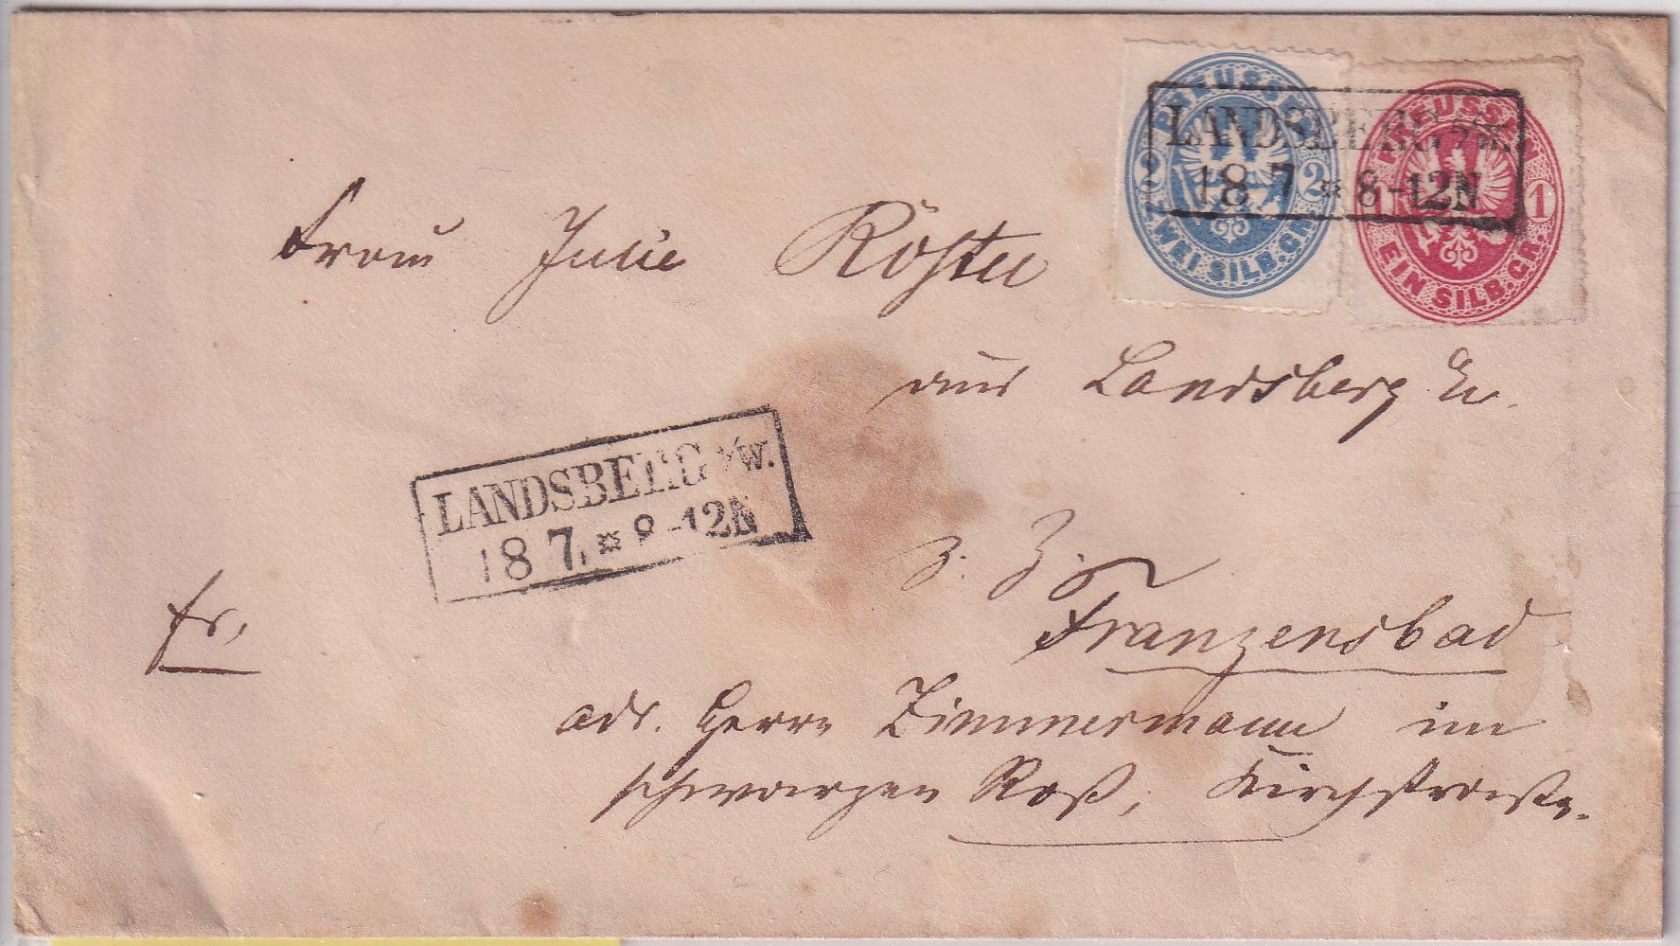 PREUSSEN
2 2
ZWEI SILB.GR.
PREUSSEN
1 1
EIN SILB.GR.
LANDSBERG a/W.
18 7 * 8-12N
Frau Julie
aus Landsberg a/w.
LANDSBERG a/W.
18 7 * 8-12N
z. Z.
fr.
Franzensbad
adr. Herrn Zimmermann im
schwarzen Roß, Kirchstraße.